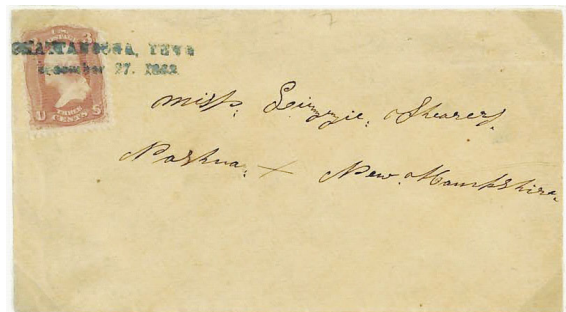 CHATTANOOGA, TENN
December 27. 1863
U.S. 3
U THREE CENTS S
Miss. Lizzzie. Shearer.
Nashua. New. Hampshire.